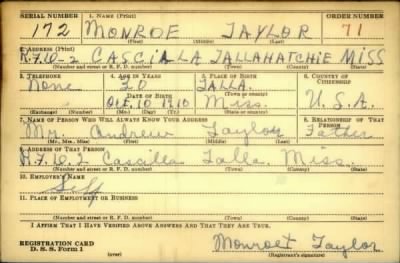 SERIAL NUMBER 1. NAME (Print) ORDER NUMBER
172 MONROE TAYLOR 71
(First) (Middle) (Last)
2. ADDRESS (Print)
R.F.D-2 CASCILLA TALLAHATCHIE MISS
(Number and street or R. F. D. number) (Town) (County) (State)
3. TELEPHONE 4. AGE IN YEARS 5. PLACE OF BIRTH 6. COUNTRY OF CITIZENSHIP
None TALLA.
DATE OF BIRTH (Town or county)
10 1910 Miss. U.S.A.
(Exchange) (Number) (Mo.) (Day) (Yr.) (State or country)
7. NAME OF PERSON WHO WILL ALWAYS KNOW YOUR ADDRESS 8. RELATIONSHIP OF THAT PERSON
Mr. Andrew Taylor Father
(Mr., Mrs., Miss) (First) (Middle) (Last)
9. ADDRESS OF THAT PERSON
R.F.D. 2 Cascilla Talla. Miss.
(Number and street or R. F. D. number) (Town) (County) (State)
10. EMPLOYER'S NAME
Self
11. PLACE OF EMPLOYMENT OR BUSINESS
(Number and street or R. F. D. number) (Town) (County) (State)
I AFFIRM THAT I HAVE VERIFIED ABOVE ANSWERS AND THAT THEY ARE TRUE.
REGISTRATION CARD
D. S. S. Form 1 (over) Monroe Taylor
(Registrant's signature)